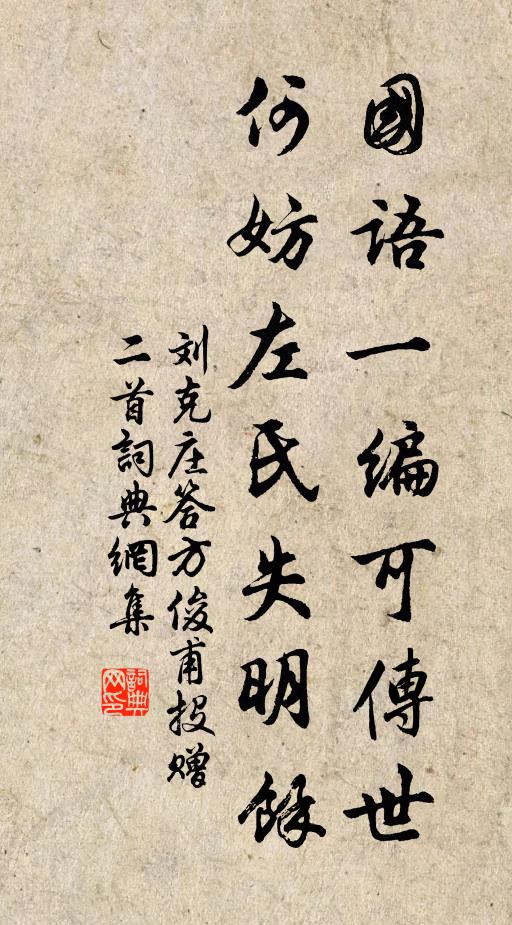 國語一编可傳世
何妨左氏失明餘
刘克庄答方俊甫投赠
二首詞典網集
詞典
网印